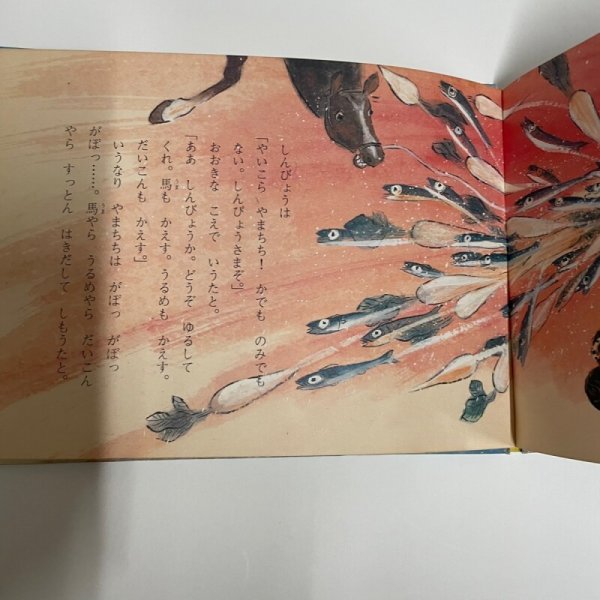 しんぴょうは
「やいこら やまちち！ かでも のみでも
ない。しんぴょうさまぞ。」
おおきな こえで いうたと。
「ああ しんぴょうか。どうぞ ゆるして
くれ。馬も かえす。うるめも かえす。
だいこんも かえす。」
いうなり やまちちは がぼっ がぼっ
がぼっ……。馬やら うるめやら だいこん
やら すっとん はきだして しもうたと。